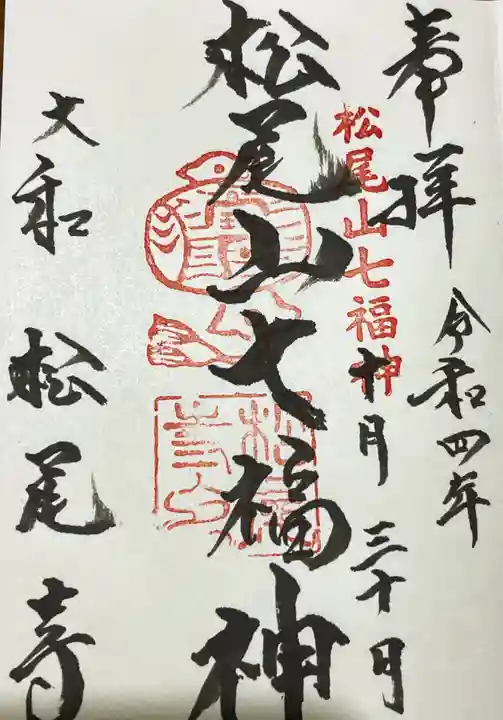 奉拝
令和四年
十月三十日
松尾山七福神
松尾山七福神
大和 松尾寺